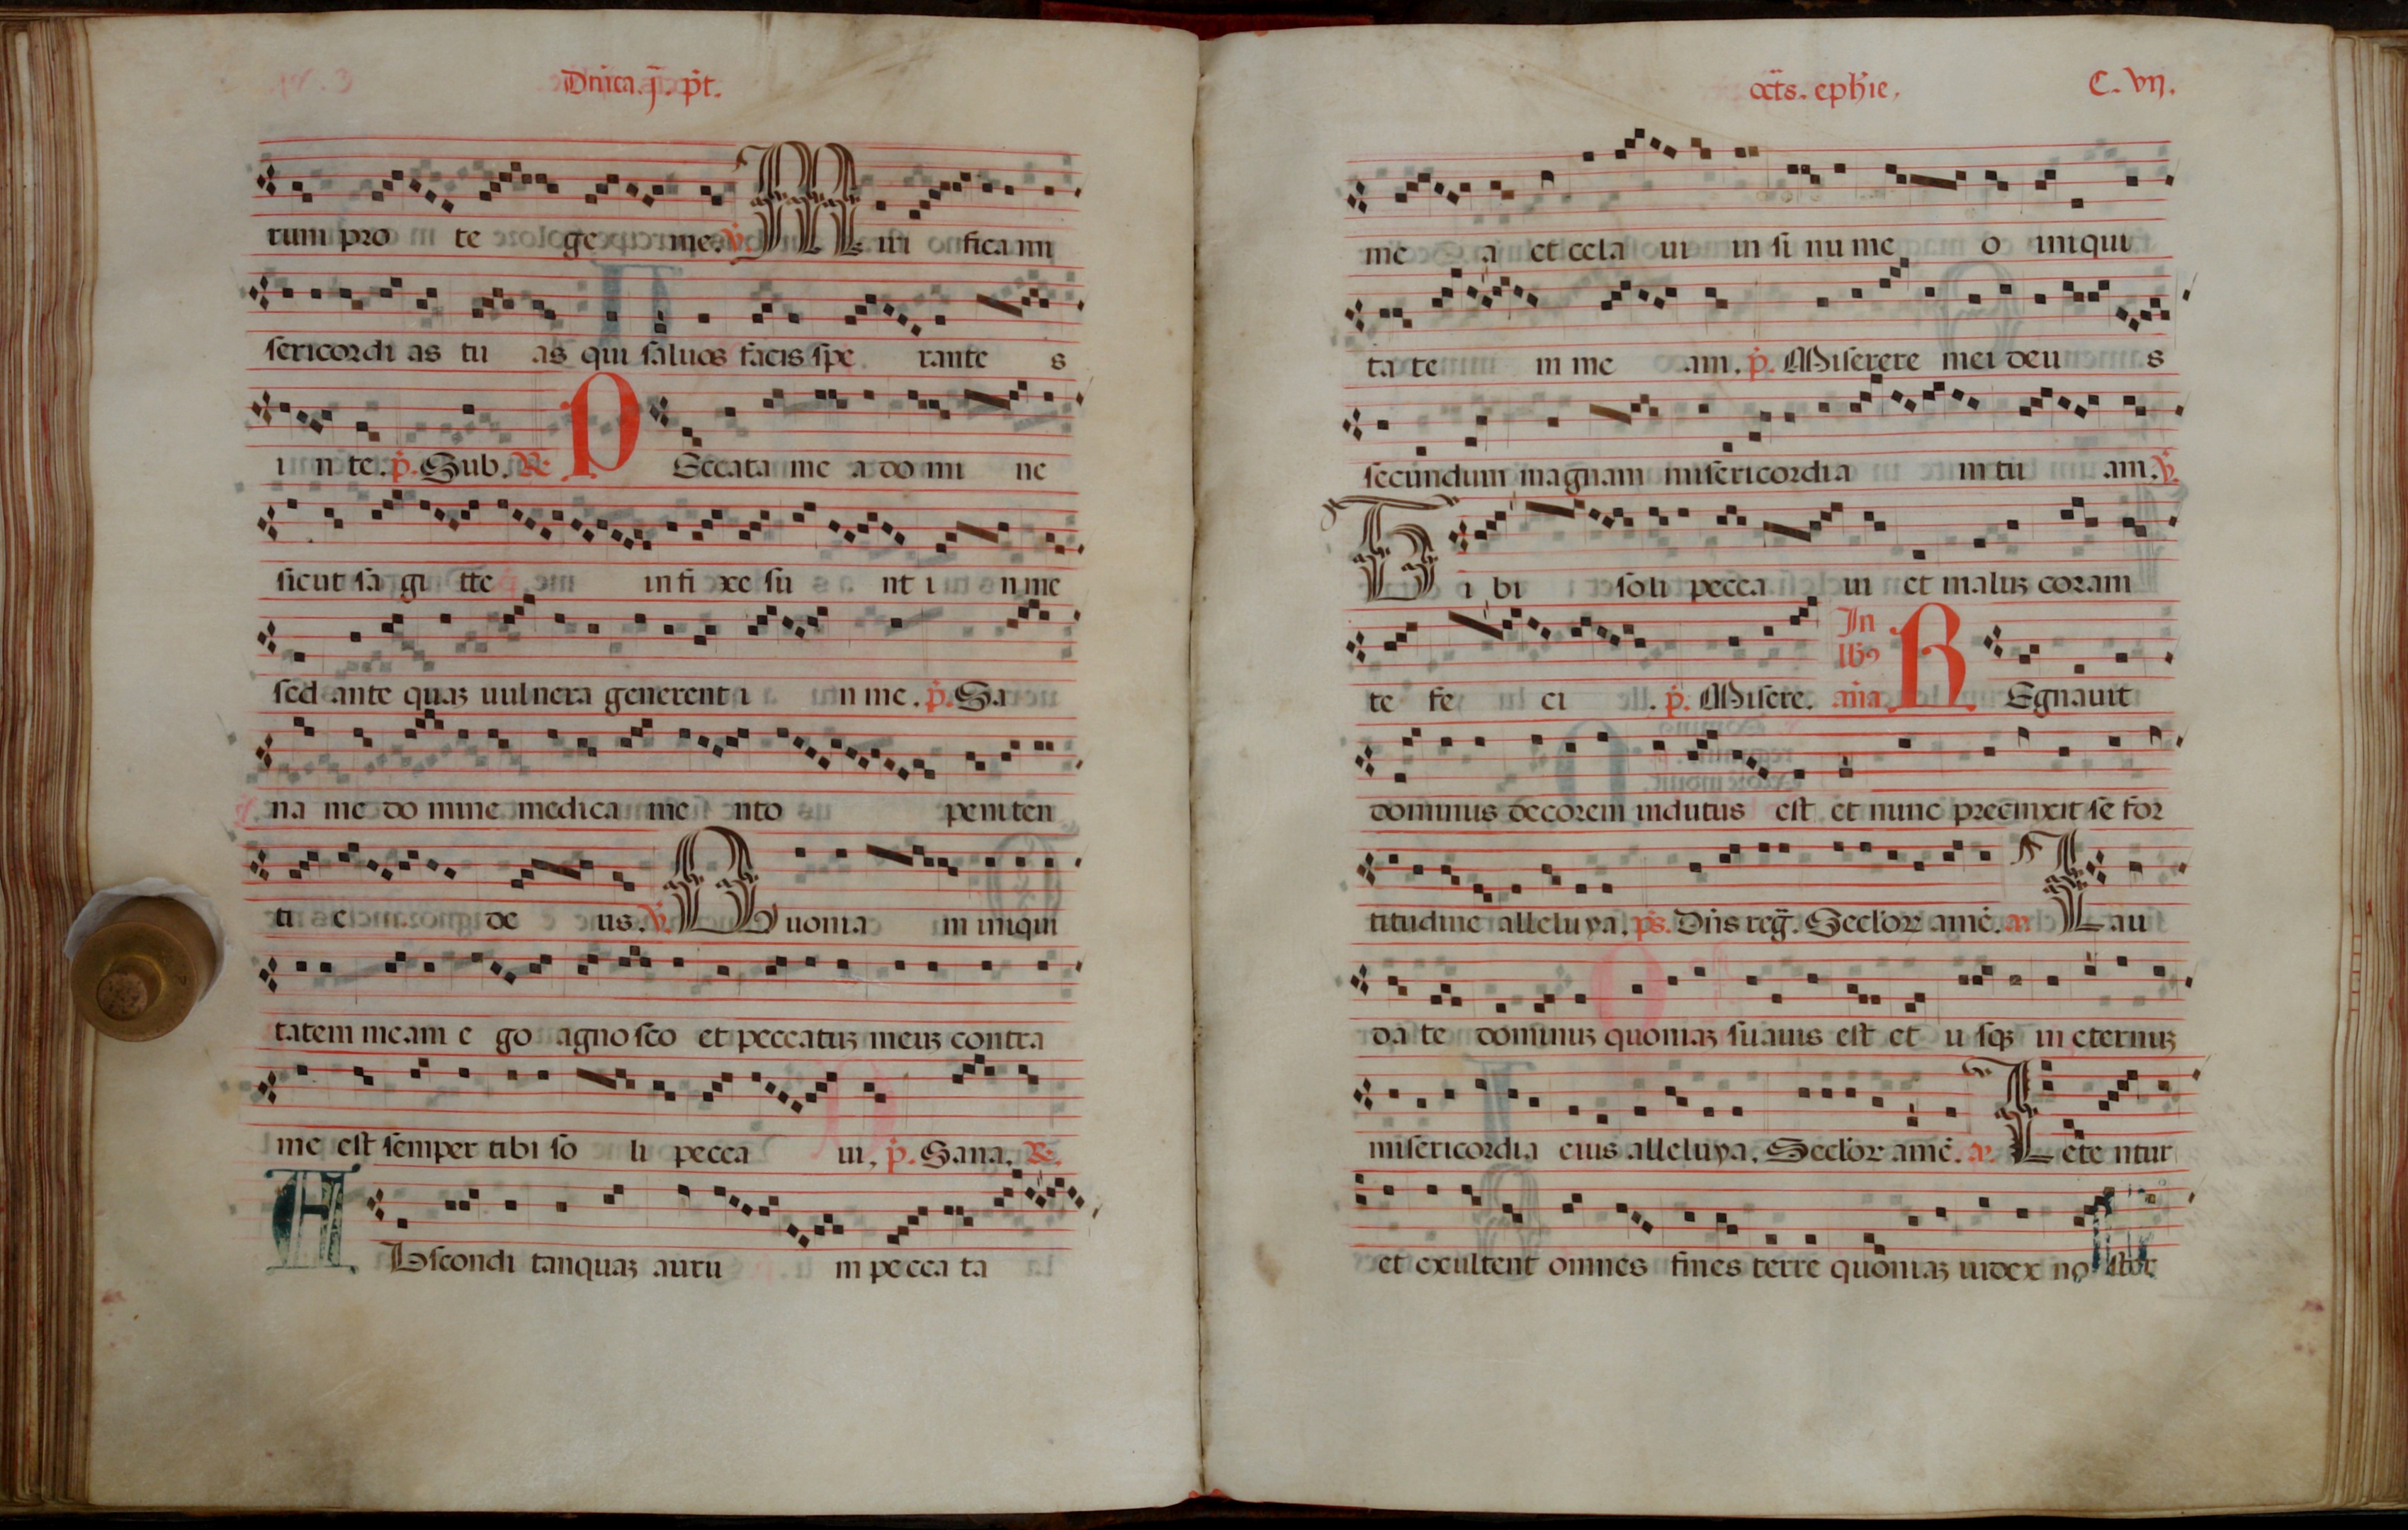 Dnica. j. pt.
rum pro te ge me. ℣. M iri fica mi
sericordi as tu as qui saluos facis spe rante s
i n te. p. Sub. ℟. P Eccata me a do mi ne
sicut sa gi tte in fi xe su nt i n me
sed ante quaʒ uulnera generent i n me. p. Sa
na me do mine medica me nto peniten
ti e de us. ℣. Q uonia m iniqui
tatem meam e go agno sco et peccatuʒ meuʒ contra
me est semper tibi so li pecca ui. p. Sana. ℟.
A Bscondi tanquaʒ auru m pecca ta
octs. ephie. C. vij.
me a et cela ui in si nu me o iniqui
ta te m me am. p. Miserere mei deu s
secundum magnam misericordia m tu am. ℣.
T i bi soli pecca ui et maluʒ coram
te fe ci . p. Misere. In lb9 aña R Egnauit
dominus decorem indutus est et nunc precinxit se for
titudine alleluya. ps. Dñs reg. Seclor amē. a. L au
da te dominuʒ quoniaʒ suauis est et u sqʒ in eternuʒ
misericordia eius alleluya. Seclor amē. a. L ete ntur
et exultent omnes fines terre quoniaʒ uidex no ster